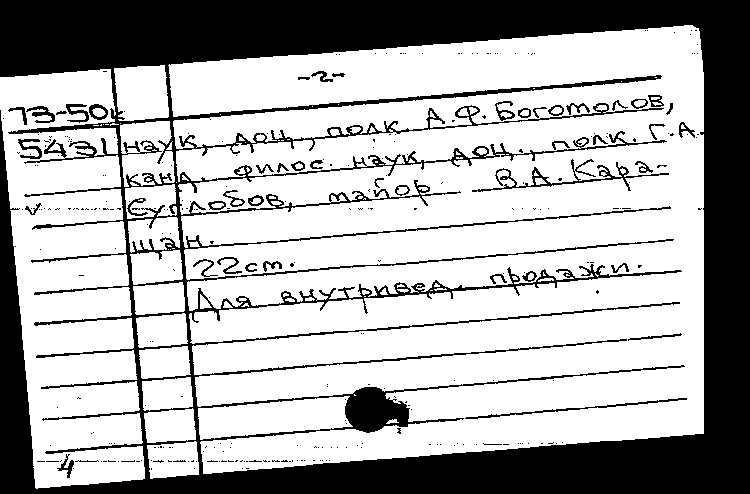 -2-
73-50к
5431 наук, доц., полк. А.Ф. Боготолов,
канд. филос. наук, доц., полк. Г.А.
Суглобов, майор В.А. Кара-
щан.
22cm.
Для внутривед. продажи.
4